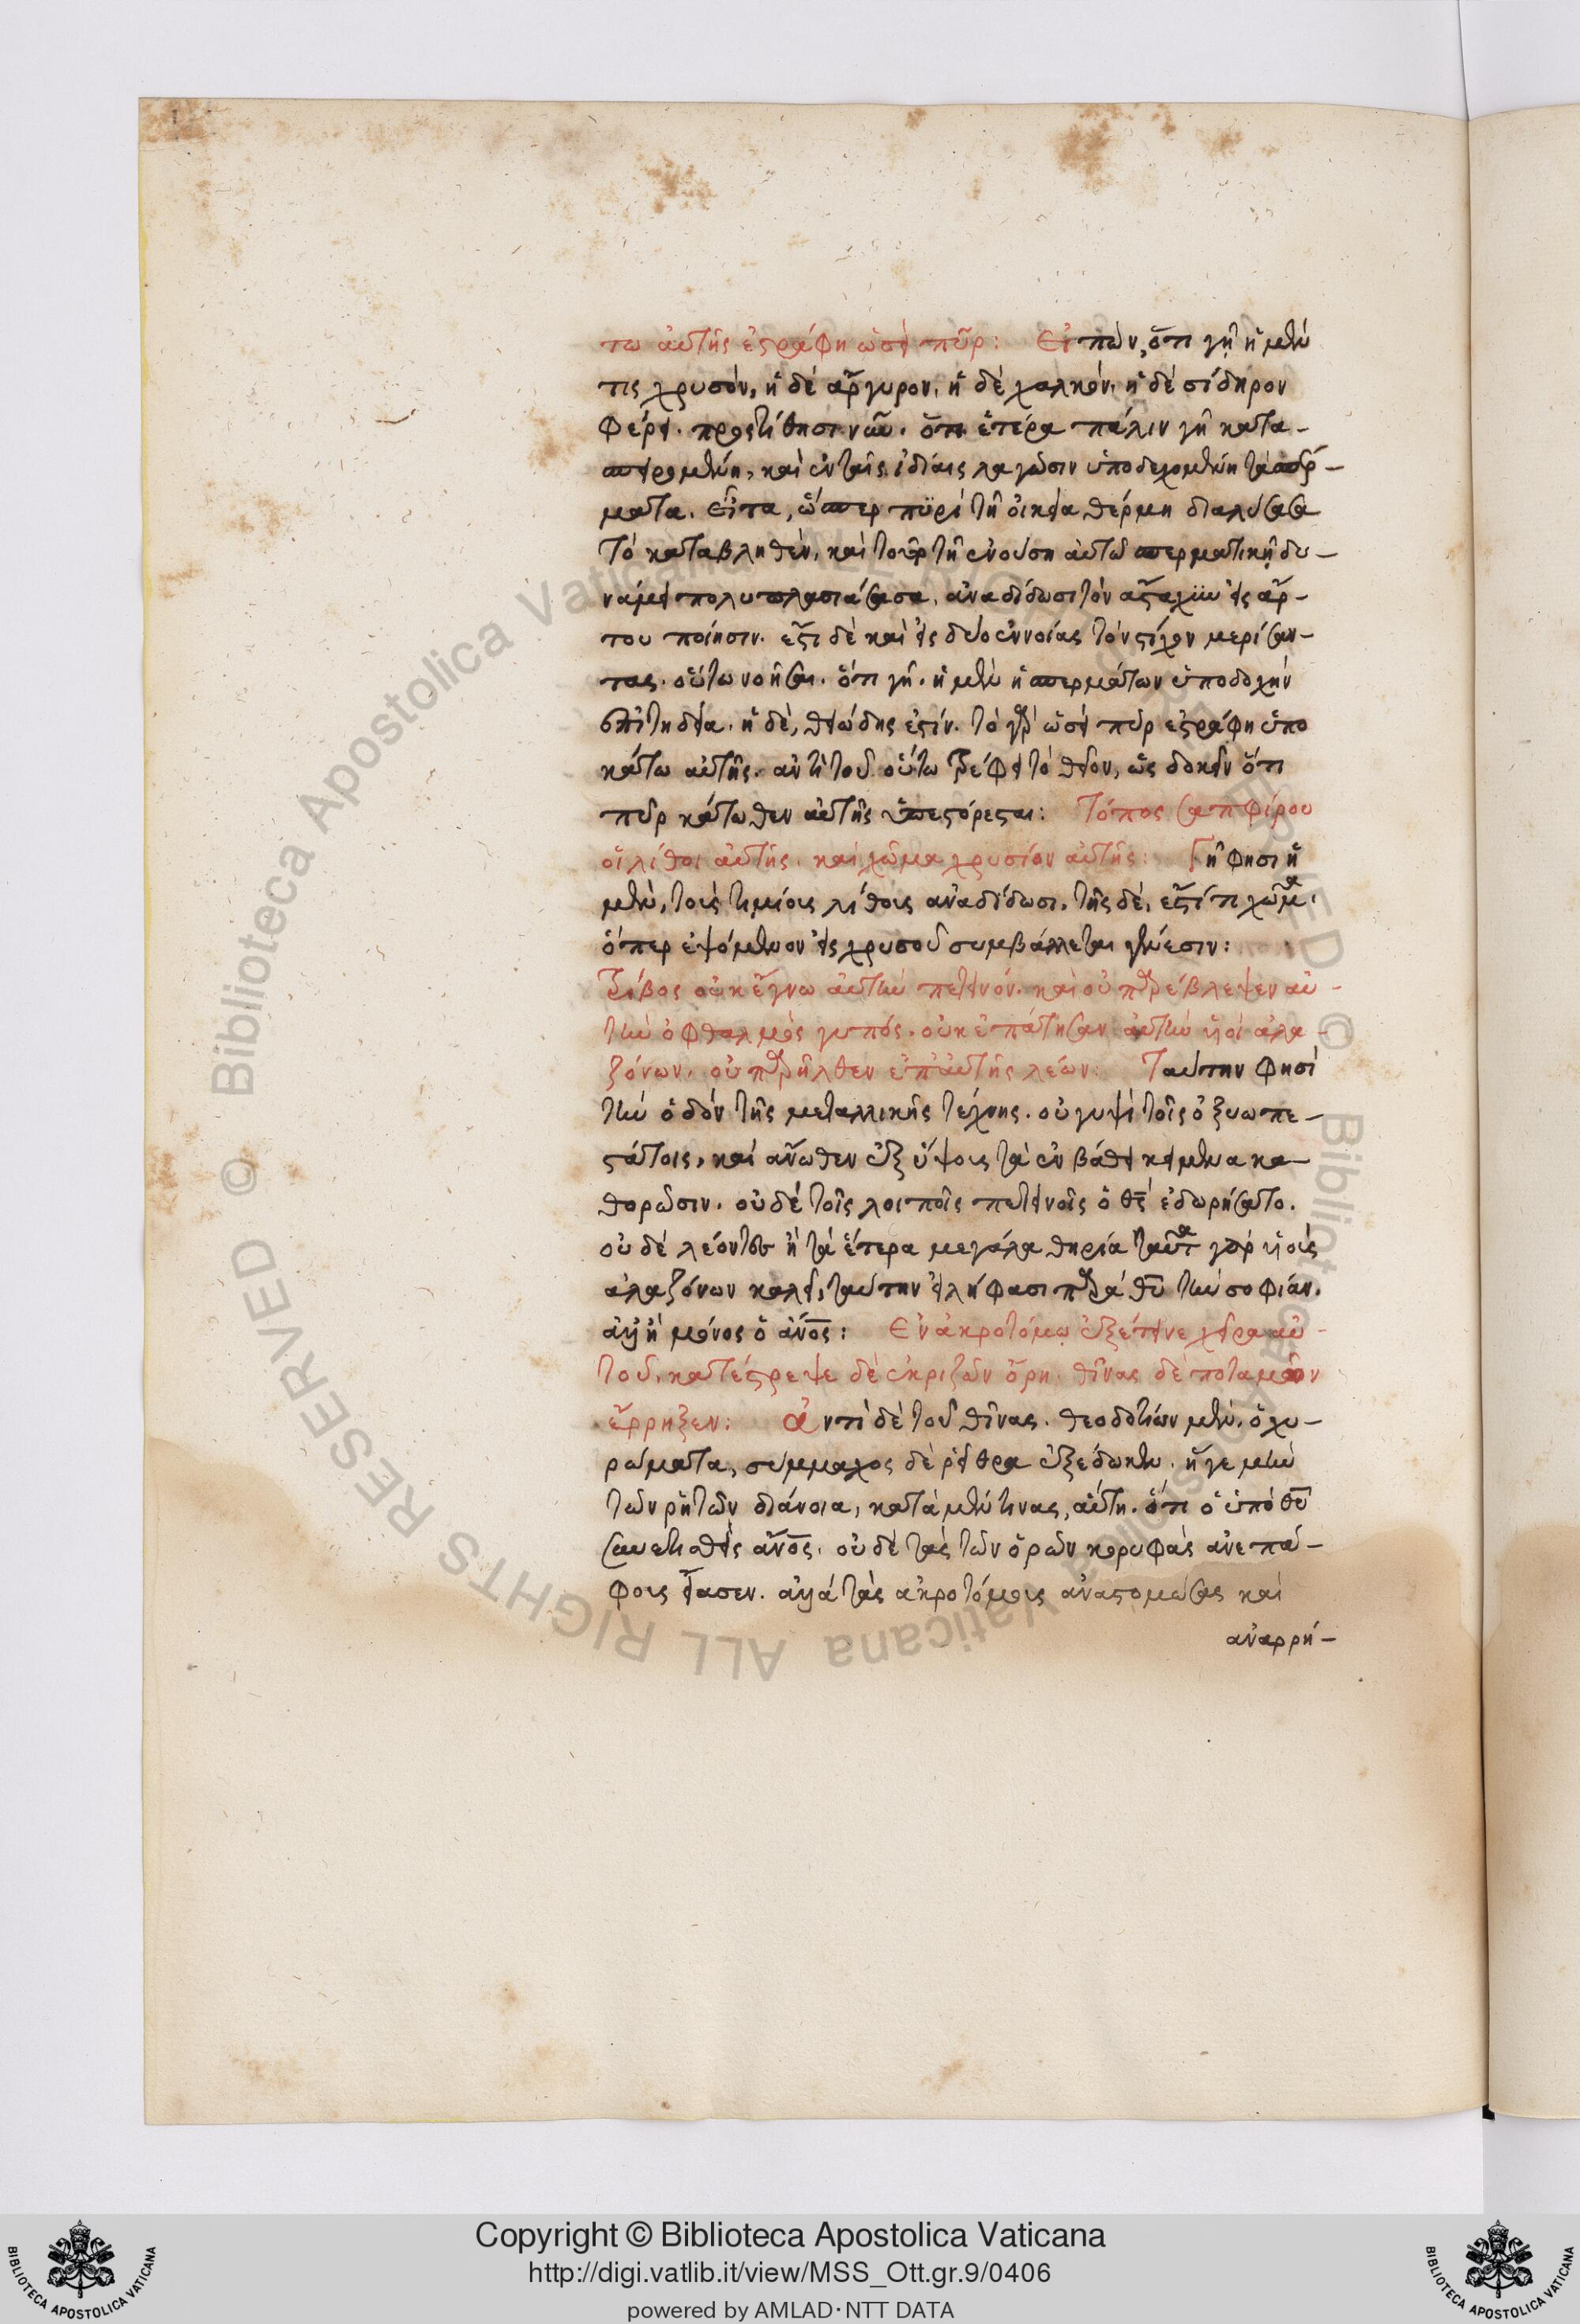 τω αὐτῆς ἐστράφη ὡσεὶ πῦρ: Εἰπὼν, ὅτι γῆ ἡ μέν
τις χρυσόν, ἡ δὲ ἄργυρον, ἡ δὲ χαλκόν, ἡ δὲ σίδηρον
φέρει. προστίθησι νῦν. ὅτι ἑτέρα πάλιν γῆ κατα-
σπειρομένη, καὶ ἐν ταῖς ἰδίαις λαγῶσιν ὑποδεχομένη τὰ σπέρ-
ματα. εἶτα, ὥσπερ πϋρὶ τῆ οἰκεία θέρμη διαλύσασα
τὸ καταβληθὲν, καὶ τοῦτο τῆ ἐνούση αὐτῶ σπερματικῆ δυ-
νάμει πολυπλασιάσασα, ἀναδίδωσι τὸν ἄσταχϋν εἰς ἄρ-
του ποίησιν. ἔστι δὲ καὶ εἰς δύο ἐννοίας τὸν στίχον μερίσαν-
τας. οὕτω νοῆσαι. ὅτι γῆ. ἡ μὲν ἡ σπερμάτων ὑποδοχὴν
ἐπιτηδεία. ἡ δὲ, θειώδης ἐστίν. τὸ γὰρ ὡσεὶ πῦρ ἐστράφη ὑπο
κάτω αὐτῆς. ἀντὶ τοῦ οὕτω τρέφει τὸ θεῖον, ὡς δοκεῖν ὅτι
πῦρ κάτωθεν αὐτῆς ὑπεστόρεσται: Τόπος σαπφίρου
οἱ λίθοι αὐτῆς. καὶ χῶμα χρυσίον αὐτῆς: Γῆ φησι ἡ
μὲν, τοὺς τιμίους λίθους ἀναδίδωσι. τῆς δὲ, ἐστί τι χῶμα.
ὅπερ ἑψόμενον εἰς χρυσοῦ συμβάλλεται γένεσιν:
Τρίβος οὐκ ἔγνω αὐτὴν πετεινόν. καὶ οὐ παρέβλεψεν αὐ-
τὴν ὀφθαλμὸς γυπός. οὐκ ἐπάτησαν αὐτὴν υἱοὶ ἀλα-
ζόνων. οὐ παρῆλθεν ἐπ' αὐτῆς λέων: Ταύτην φησὶ
τὴν ὁδὸν τῆς μεταλλικῆς τέχνης. οὐ γυψὶ τοῖς ὀξυωπε-
στάτοις, καὶ ἄνωθεν ἐξ ὕψους τὰ ἐν βάθει κείμενα κα-
θορῶσιν. οὐδὲ τοῖς λοιποῖς πετεινοῖς ὁ θς ἐδωρήσατο.
οὐδὲ λέοντες ἢ τὰ ἕτερα μεγάλα θηρία ταῦτα γὰρ υἱοὺς
ἀλαζόνων καλεῖ, ταύτην εἰλήφασι παρὰ θυ τὴν σοφίαν.
ἀλλ' ἢ μόνος ὁ ἄνος: Εν ἀκροτόμω ἐξέτεινε χεῖρα αὐ-
τοῦ. κατέστρεψε δὲ ἐκ ριζῶν ὄρη. θῖνας δὲ ποταμῶν
ἔρρηξεν: ἀντὶ δὲ τοῦ θῖνας. θεοδοτίων μὲν. ὀχυ-
ρώματα, σύμμαχος δὲ ῥεῖθρα ἐξέδωκεν. ἥ γε μὴν
τῶν ρητῶν διάνοια, κατὰ μέν τινας, αὕτη. ὅτι ὁ ὑπὸ θυ
συνετισθεὶς ἄνος. οὐδὲ τὰς τῶν ὀρῶν κορυφὰς ἀνεπά-
φους εἴασεν. ἀλλὰ τὰς ἀκροτόμους ἀναστομώσας καὶ
ἀναρρή-
Copyright © Biblioteca Apostolica Vaticana
http://digi.vatlib.it/view/MSS_Ott.gr.9/0406
powered by AMLAD·NTT DATA